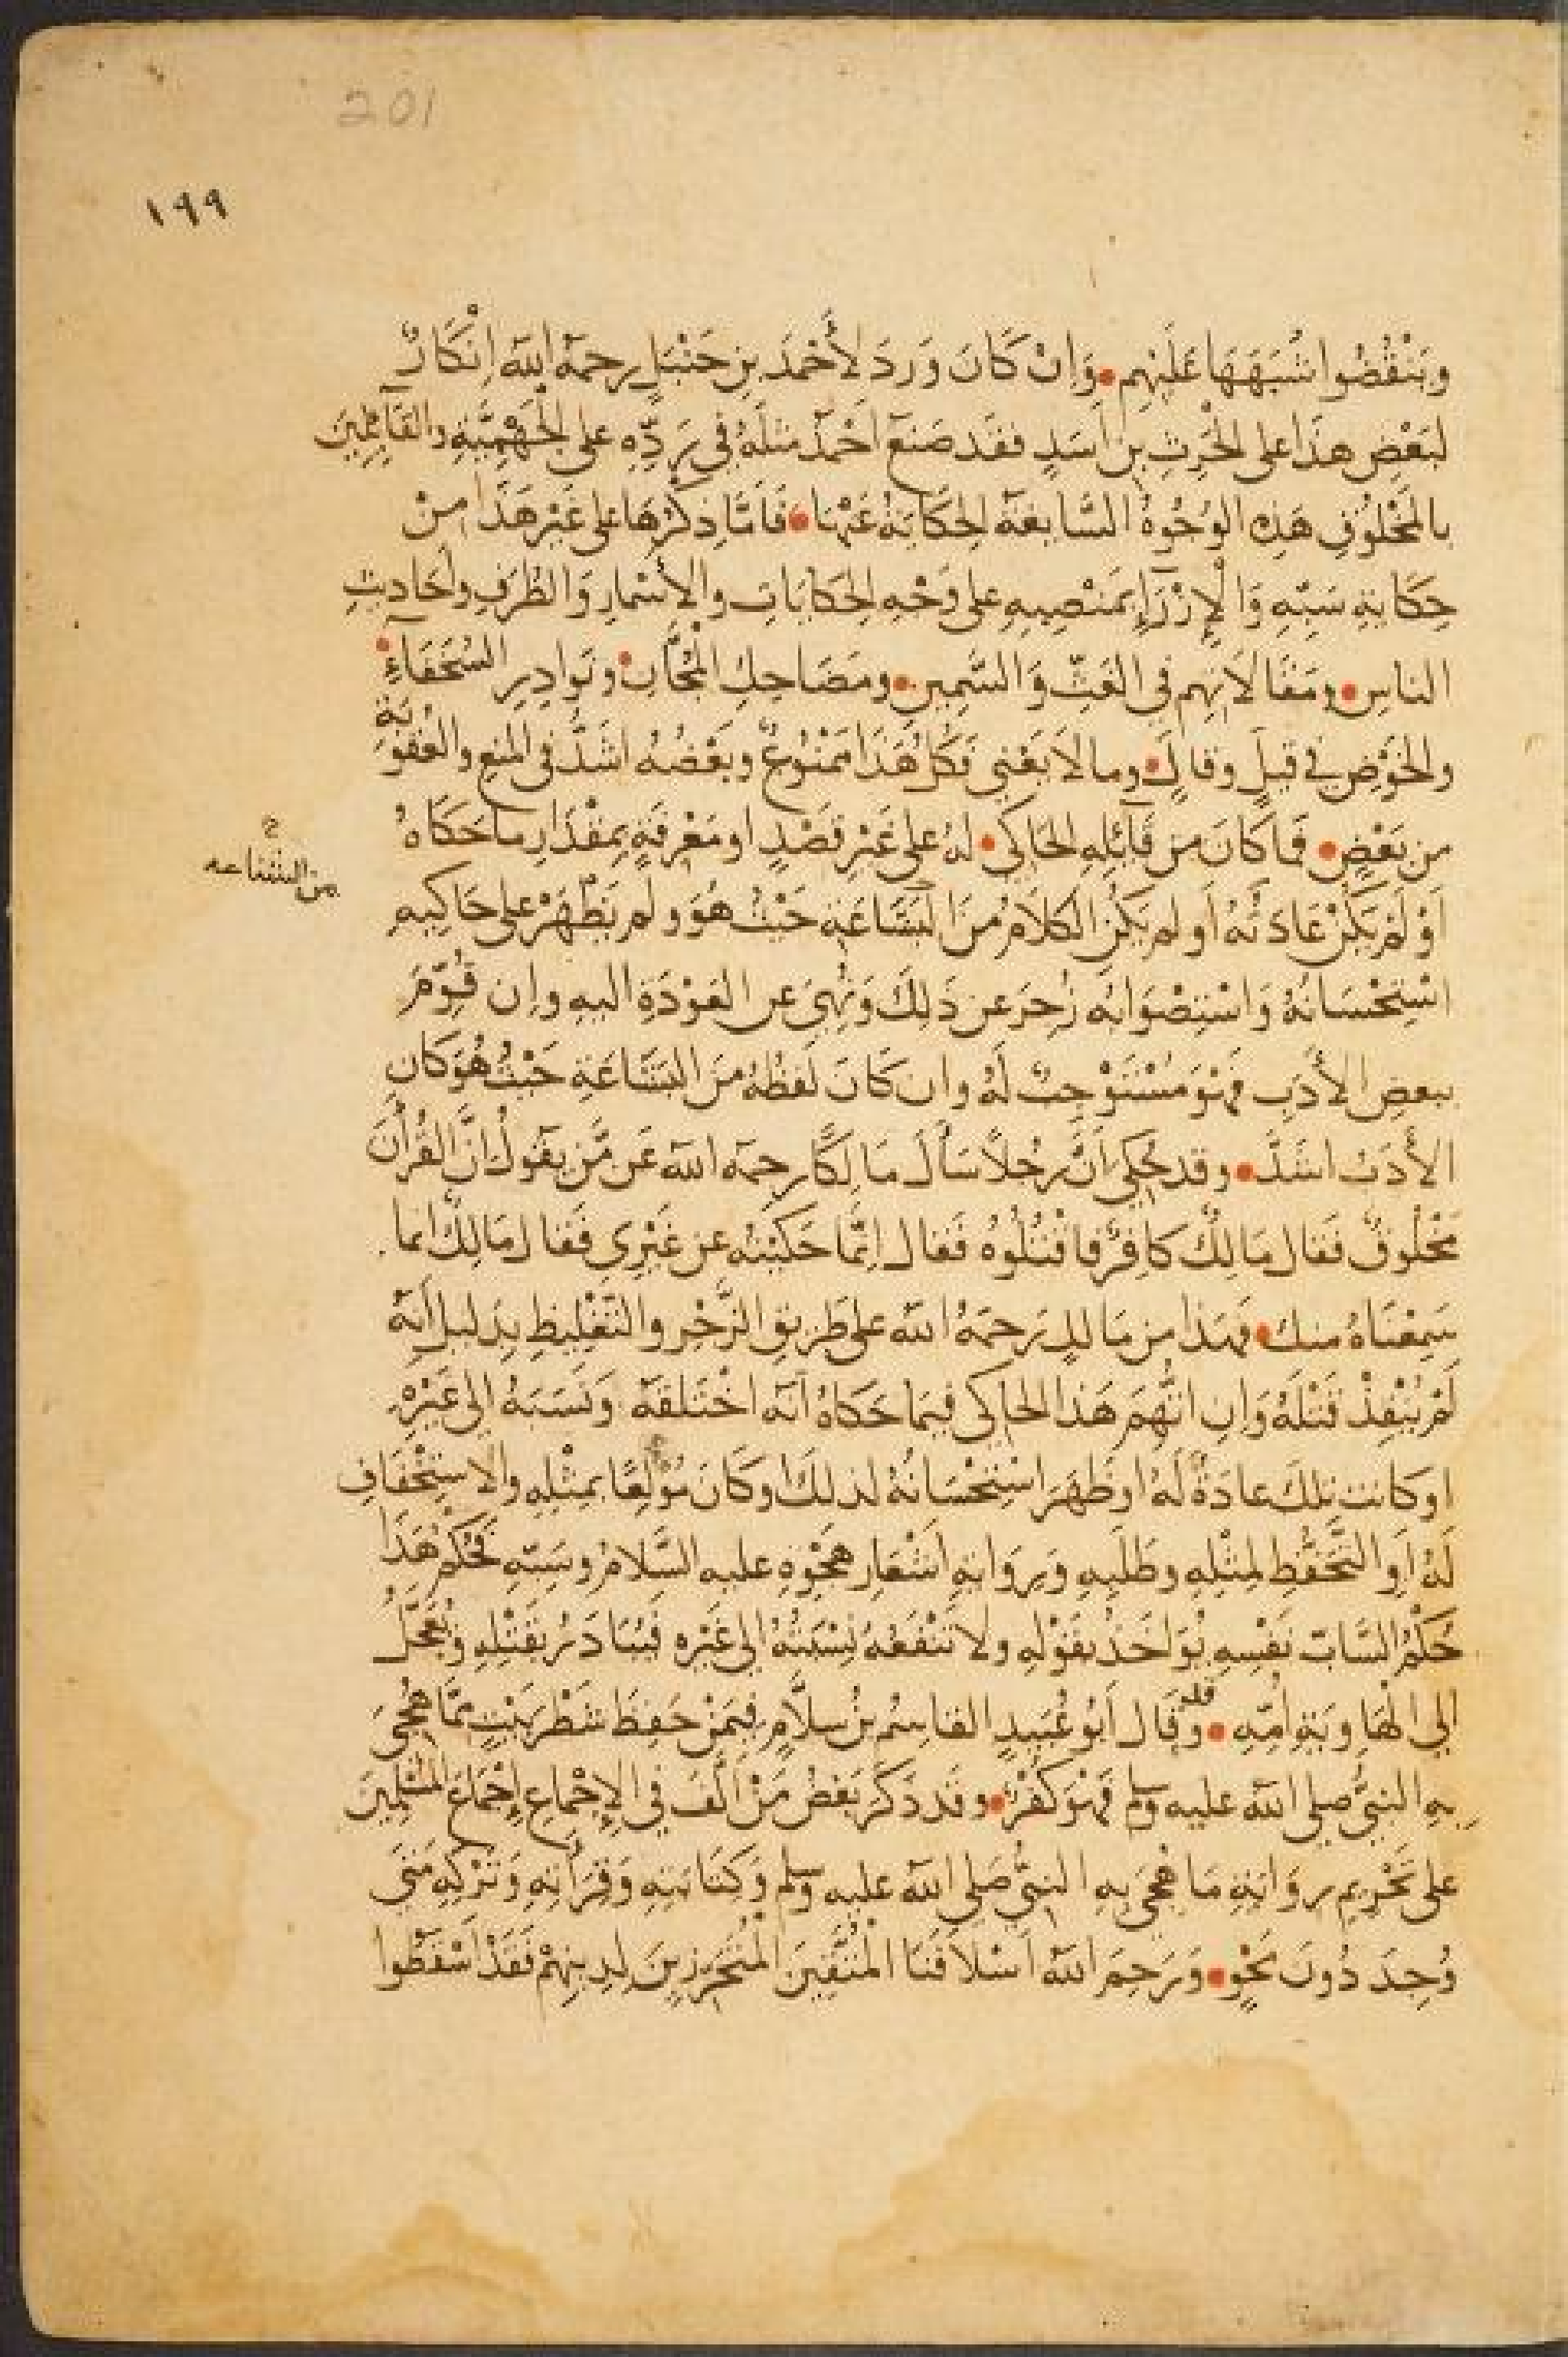 201
١٩٩
وَيَنْقُضُوا شُبَهَهَا عَلَيْهِم • وَاِنْ كَانَ وَرَدَ لِأَحْمَدَ بنِ حَنْبَلٍ رحمَهُ اللّه اِنْكَارٌ
لبَعْضِ هذَا على الحٰرِثِ بن اَسَدٍ فقَد صَنعَ اَحْمَدُ مثلَهُ في رَدِّهِ على الجَهْمِيَّةِ والقَآئِلِينَ
بالمَخْلُوقِ هَذِهِ الوُجُوهُ السَّايِغَة الحِكَايَةُ عَنْهَا • فَأمَّا ذِكْرُهَا على غَيْرِ هَذَا مِنْ
حِكَايَةِ سَبِّهِ وَالْإِزْرَآءِ بمَنْصِبِهِ على وَجْهِ الحِكَايَاتِ والاِسْمَارِ وَالطُّرَفِ واَحَادِيثِ
الناسِ • ومَقَالَاتِهِم في الغَثِّ وَالسَّمِينِ • ومَضَاحِكِ المُجَّانِ • ونَوادِرِ السُّخَفَاءِ •
والخَوْضِ في قيلٍ وقالٍ • وما لَا يَعْنِي فَكُلُّ هَذَا مَمْنُوعٌ وبَعْضُهُ اشَدُّ في المنعِ والعُقُوبَةِ
من بَعْضٍ • فَمَا كَانَ من قَآئِلِهِ الحَاكي • لهُ على غَيْرِ قَصْدٍ او مَعْرِفَةٍ بِمِقْدَارِ ما حَكَاهُ
اَوْ لَمْ يَكُنْ عَادَتُهُ اَو لم يَكُنِ الكَلَامُ مِنَ البَشَاعَةِ حَيْثُ هُوَ ولم يَظْهَرْ على حَاكِيهِ
من الشناعه
اسْتِحْسَانُهُ وَاسْتِصْوَابُه زُجِرَ عن ذَلِكَ وَنُهِيَ عن العَوْدَةِ اليهِ وإن قُوِّمَ
ببعضِ الأَدَبِ فهُوَ مُسْتَوْجِبٌ لَهُ وان كَانَ لَفظُهُ منَ البَشَاعَةِ حَيْثُ هُوَ كان
الأَدَبُ اشَدَّ • وقد حُكِيَ أَنَّ رَجُلاً سَأَلَ مَالِكًا رحِمَه اللّه عَن مَّن يَقولُ اِنَّ القُرْآنَ
مَخْلُوقٌ فَقال مَالِكٌ كافِرٌ فاقْتُلُوهُ فَقال اِنَّمَا حَكَيْتُه عن غَيْرِي فَقال مَالِكٌ انما
سَمِعْنَاهُ منك • فهَذا من مَالكٍ رَحمَهُ اللّه على طَرِيقِ الزَّجْرِ والتَّغْلِيظِ بِدَليلِ اَنَّهُ
لَمْ يُنْفِذْ قَتْلَهُ وَاِنِ اتُّهِمَ هَذا الحاكي فيمَا حَكَاهُ اَنَّه اخْتَلَقَهُ وَنَسَبَهُ الى غَيْرِهِ
اوكانت تِلكَ عادَةً لَهُ او ظَهَرَ اسْتِحْسَانُهُ لذلكَ اوكَانَ مُولَعًا بمِثْلِهِ والاسْتِخْفَافِ
لَهُ اَوِ التَّحَفُّظِ لِمثْلِهِ وطَلَبِهِ وَرِوَايَةِ اَشْعَارِ هَجْوِهِ عليه السَّلامُ وسَبِّهِ فَحُكْمُ هَذَا
حُكْمُ السَّابِّ نَفْسِهِ يُوَاخَذُ بقَوْلِهِ ولا تَنْفَعُهُ نِسْبَتُهُ الى غَيْرِه فَيُبَادَرُ بقَتْلِهِ ويُعَجَّلُ
الى الهَاوِيَةِ اُمِّهِ • وقد قَال اَبُو عُبَيدٍ القاسِمُ بنُ سلَّامٍ فِيمَنْ حَفِظَ شَطْرَ بَيْتٍ مِمَّا هُجِيَ
بِهِ النبيُّ صلى اللّه عليه وسلم فهُوَ كُفْرٌ • وقَد ذَكَرَ بَعْضُ مَنْ اَلَّفَ في الاِجْمَاعِ اِجْمَاعَ المُسْلِمِينَ
على تَحْرِيمِ رِوَايَةِ مَا هُجِيَ بِهِ النبيُّ صَلى اللّه عليه وسلم وَكِتَابَتِهِ وَقِرَأَتِهِ وَتَرْكِهِ مَتَى
وُجِدَ دُونَ مَحْوٍ • وَرَحِمَ اللّه اَسْلَافَنَا المُتَّقِينَ المُتَحَرِّزِينَ لِدِينِهِمْ فَقَدْ اَسْقَطُوا